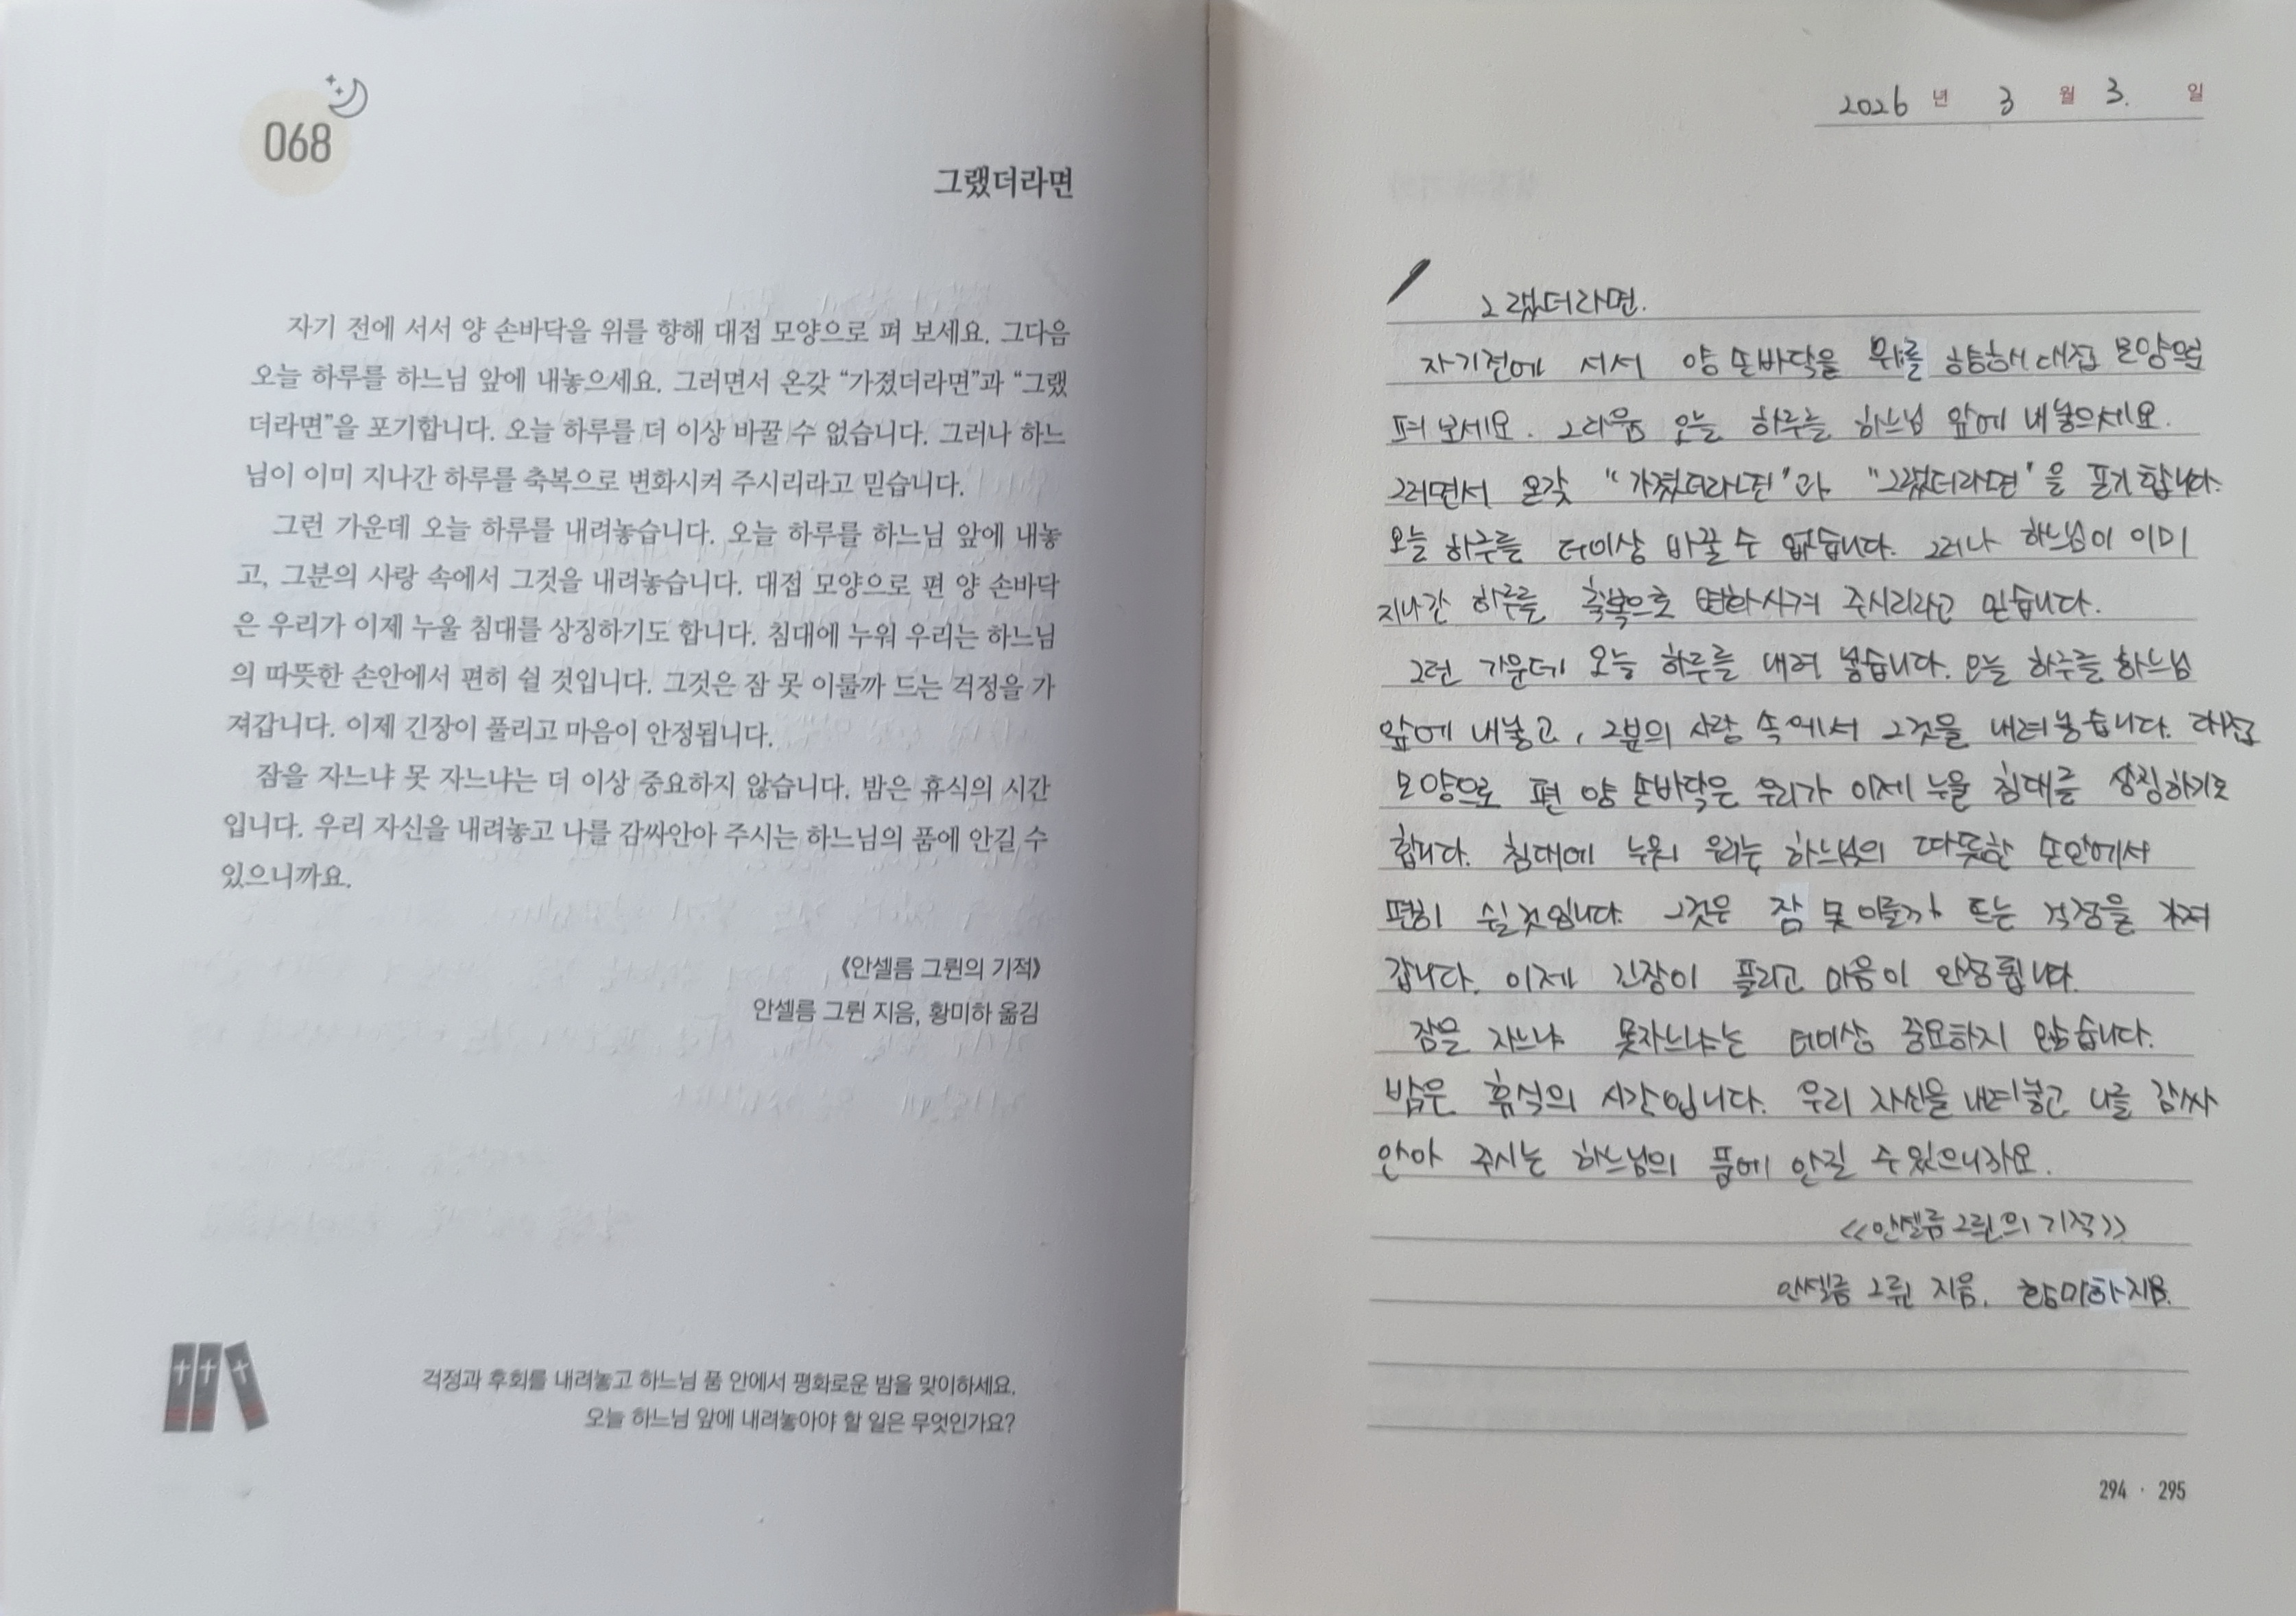 068
그랬더라면
자기 전에 서서 양 손바닥을 위를 향해 대접 모양으로 펴 보세요. 그다음
오늘 하루를 하느님 앞에 내놓으세요. 그러면서 온갖 “가졌더라면”과 “그랬
더라면”을 포기합니다. 오늘 하루를 더 이상 바꿀 수 없습니다. 그러나 하느
님이 이미 지나간 하루를 축복으로 변화시켜 주시리라고 믿습니다.
그런 가운데 오늘 하루를 내려놓습니다. 오늘 하루를 하느님 앞에 내놓
고, 그분의 사랑 속에서 그것을 내려놓습니다. 대접 모양으로 편 양 손바닥
은 우리가 이제 누울 침대를 상징하기도 합니다. 침대에 누워 우리는 하느님
의 따뜻한 손안에서 편히 쉴 것입니다. 그것은 잠 못 이룰까 드는 걱정을 가
져갑니다. 이제 긴장이 풀리고 마음이 안정됩니다.
잠을 자느냐 못 자느냐는 더 이상 중요하지 않습니다. 밤은 휴식의 시간
입니다. 우리 자신을 내려놓고 나를 감싸안아 주시는 하느님의 품에 안길 수
있으니까요.
《안셀름 그륀의 기적》
안셀름 그륀 지음, 황미하 옮김
걱정과 후회를 내려놓고 하느님 품 안에서 평화로운 밤을 맞이하세요.
오늘 하느님 앞에 내려놓아야 할 일은 무엇인가요?
2026 년 3 월 3. 일
그랬더라면.
자기전에 서서 양 손바닥을 위를 향해 대접 모양으로
펴 보세요. 그다음 오늘 하루를 하느님 앞에 내놓으세요.
그러면서 온갖 "가졌더라면"과 "그랬더라면"을 포기합니다.
오늘 하루를 더이상 바꿀 수 없습니다. 그러나 하느님이 이미
지나간 하루를 축복으로 변화시켜 주시리라고 믿습니다.
그런 가운데 오늘 하루를 내려 놓습니다. 오늘 하루를 하느님
앞에 내놓고, 그분의 사랑 속에서 그것을 내려놓습니다. 대접
모양으로 편 양 손바닥은 우리가 이제 누울 침대를 상징하기도
합니다. 침대에 누워 우리는 하느님의 따뜻한 손안에서
편히 쉴것입니다. 그것은 잠 못 이룰까 드는 걱정을 가져
갑니다. 이제 긴장이 풀리고 마음이 안정됩니다.
잠을 자느냐 못자느냐는 더이상 중요하지 않습니다.
밤은 휴식의 시간입니다. 우리 자신을 내려놓고 나를 감싸
안아 주시는 하느님의 품에 안길 수있으니까요.
<<안셀름 그륀의 기적>>
안셀름 그륀 지음, 황미하지음.
294 · 295